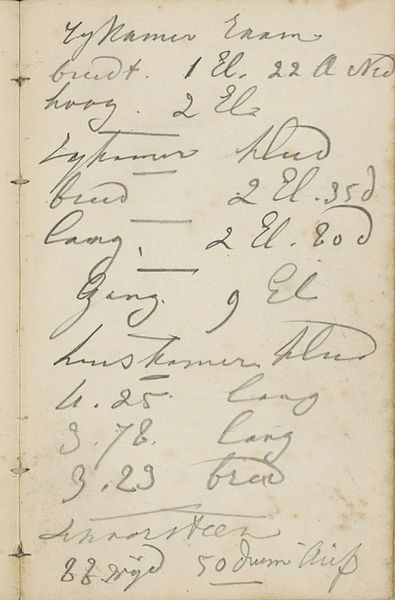 Zykamer Raam
breedt. 1 El. 22 d Ned
hoog. 2 El.
Zykamer kleed
breed 2 El. 35 d
lang, 2 El. 80 d
Gang. 9 El
huiskamer kleed
4.25 lang
3.78. lang
3.23 breed
schoorsteen
88 wijd 50 duim